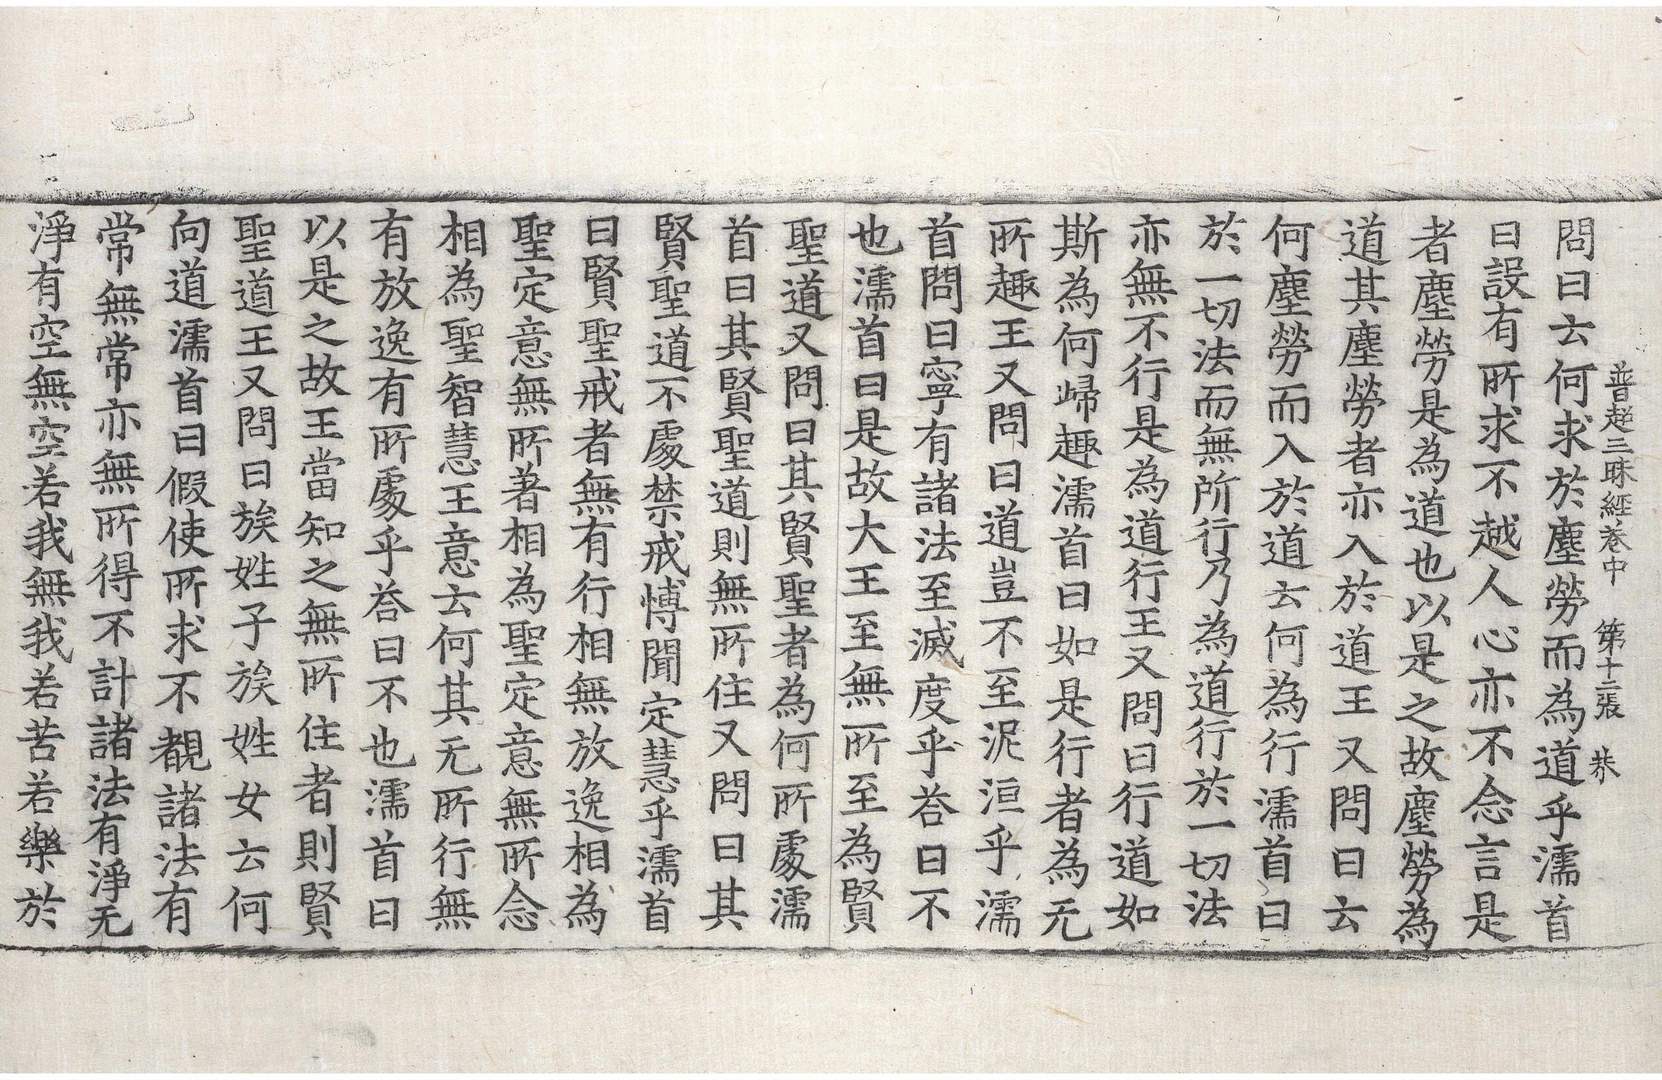 普超三昧經卷中　第十二張　恭
問曰云何求於塵勞而為道乎濡首
曰設有所求不越人心亦不念言是
者塵勞是為道也以是之故塵勞為
道其塵勞者亦入於道王又問曰云
何塵勞而入於道云何為行濡首曰
於一切法而無所行乃為道行於一切法
亦無不行是為道行王又問曰行道如
斯為何歸趣濡首曰如是行者為无
所趣王又問曰道豈不至泥洹乎濡
首問曰寧有諸法至滅度乎荅曰不
也濡首曰是故大王至無所至為賢
聖道又問曰其賢聖者為何所處濡
首曰其賢聖道則無所住又問曰其
賢聖道不處禁戒慱聞定慧乎濡首
曰賢聖戒者無有行相無放逸相為
聖定意無所著相為聖定意無所念
相為聖智慧王意云何其无所行無
有放逸有所處乎荅曰不也濡首曰
以是之故王當知之無所住者則賢
聖道王又問曰族姓子族姓女云何
向道濡首曰假使所求不覩諸法有
常無常亦無所得不計諸法有淨无
淨有空無空若我無我若苦若樂於